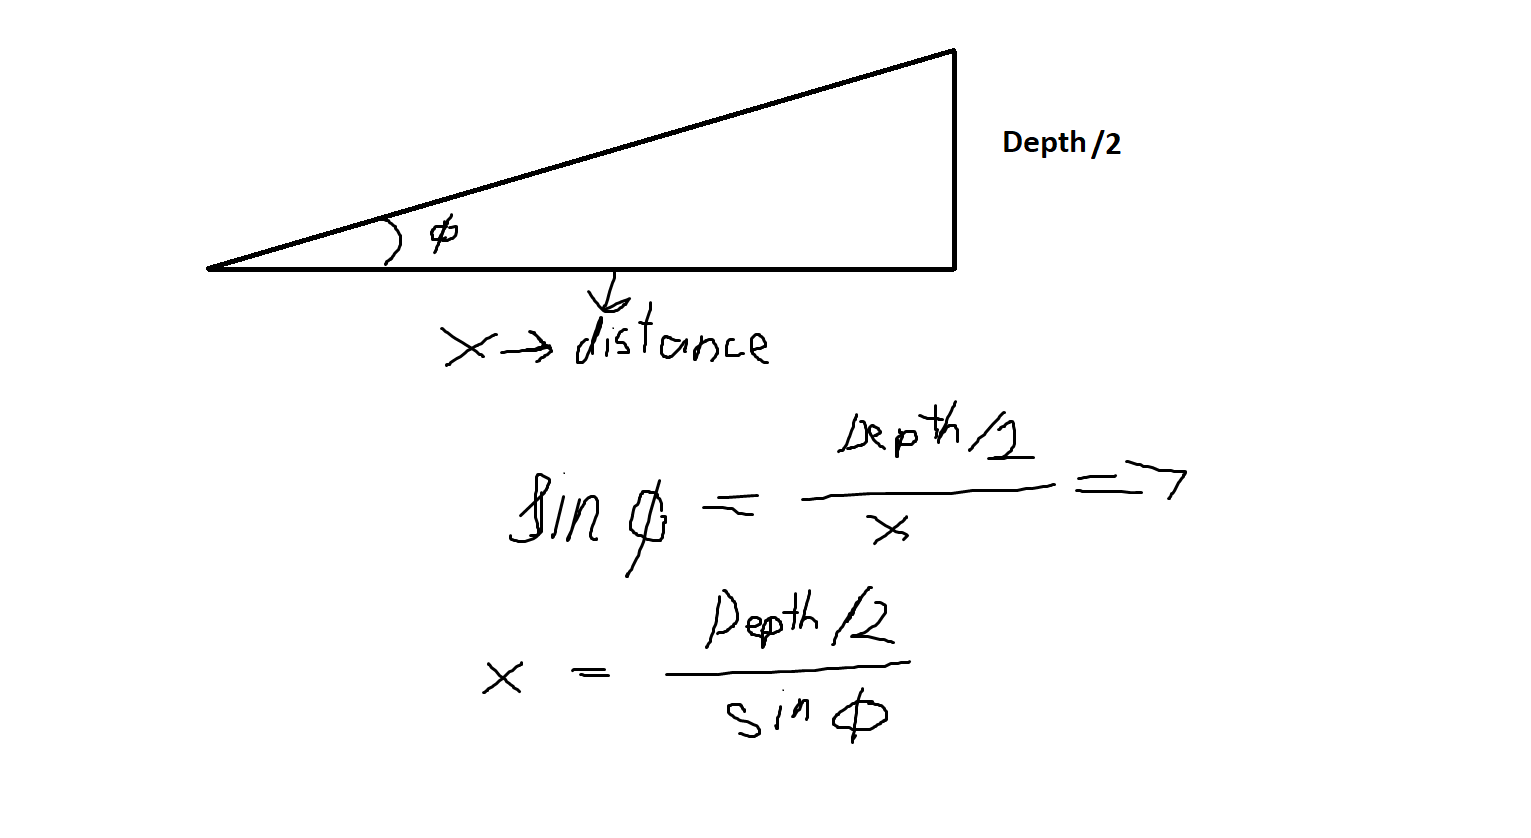 Depth/2
ϕ
x → distance
sin ϕ = Depth/2 / x =>
x = Depth/2 / sin ϕ